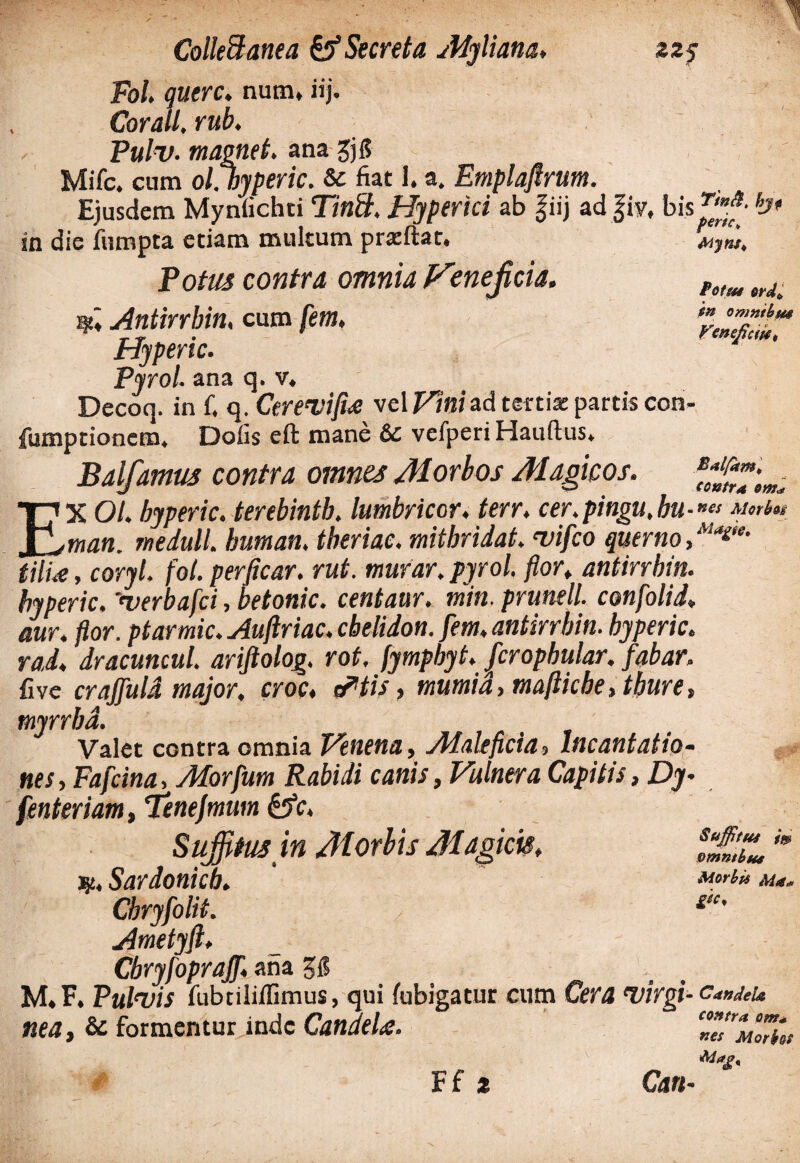 Collectanea & Secreta Myliana. 225
Fol. querc. num. iij.
Corall. rub.
Pulv. magnet. ana ʒjß
Misc. cum ol. hyperic. & fiat l. a. Emplastrum.
Ejusdem Mynsichti Tinct. Hyperici ab ℥iij ad ℥iv. bis
in die sumpta etiam multum præstat.
Tinct. hy-
peric.
Myns.
Potus contra omnia Veneficia.
℞. Antirrhin. cum sem.
Hyperic.
Pyrol. ana q. v.
Potus ord.
in omnibus
Veneficiis.
Decoq. in s. q. Cerevisiæ vel Vini ad tertiæ partis con-
sumptionem. Dosis est mane & vesperi Haustus.
Balsamus contra omnes Morbos Magicos.
Balsam.
contra om-
nes Morbos
Magic.
EX Ol. hyperic. terebinth. lumbricor. terr. cer. pingu. hu-
man. medull. human. theriac. mithridat. visco querno,
tiliæ, coryl. fol. persicar. rut. murar. pyrol. flor. antirrhin.
hyperic. verbasci, betonic. centaur. min. prunell. consolid.
aur. flor. ptarmic. Austriac. chelidon. sem. antirrhin. hyperic.
rad. dracuncul. aristolog. rot. symphyt. scrophular. fabar.
sive crassulâ major. croc. ♂tis, mumiâ, mastiche, thure,
myrrhâ.
Valet contra omnia Venena, Maleficia, Incantatio-
nes, Fascina, Morsum Rabidi canis, Vulnera Capitis, Dy-
senteriam, Tenesmum &c.
Suffitus in Morbis Magicis.
℞. Sardonich.
Chrysolit.
Ametyst.
Chrysoprass. ana ʒß
Suffitus in
omnibus
Morbis Ma-
gic.
M. F. Pulvis subtilissimus, qui subigatur cum Cera virgi-
nea, & formentur inde Candelæ.
Candelæ
contra om-
nes Morbos
Mag.
Ff 2 Can-